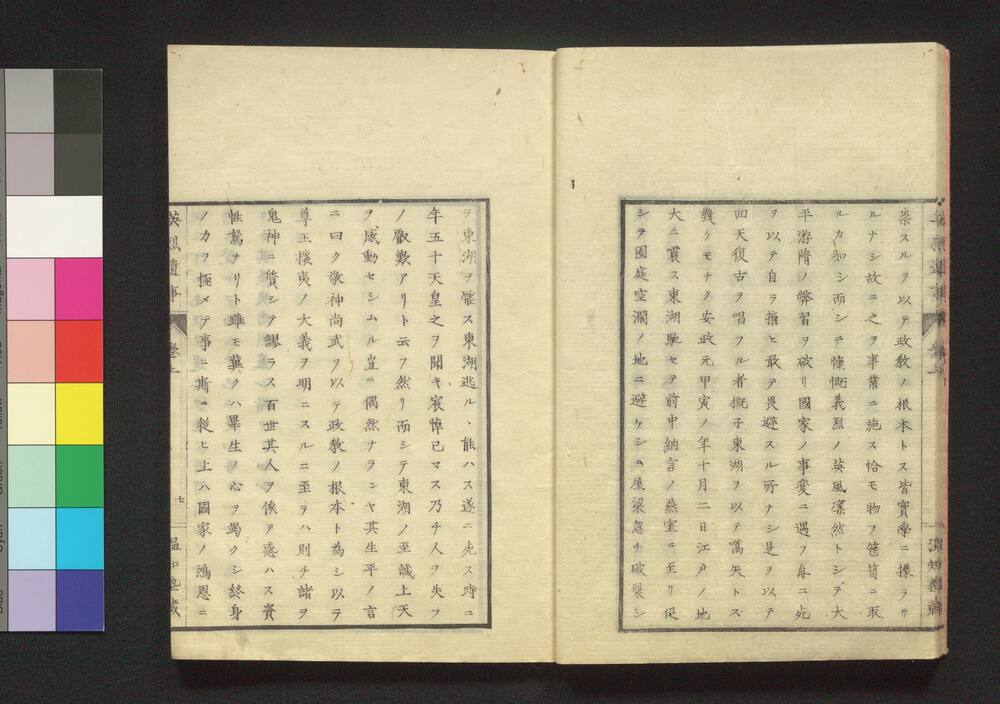 崇スルヲ以テ政敎ノ根本トス皆實學ニ據ラサ
ルナシ故ニ之ヲ事業ニ施ス恰モ物ヲ筐笥ニ取
ルカ如シ而シテ慷慨義烈ノ英風凛然トシテ大
平游隋ノ弊習ヲ破リ國家ノ事変ニ遇フ每ニ死
ヲ以テ自ラ擔ヒ最テ畏避スル所ナシ是ヲ以テ
回天復古ヲ唱フル者概子東湖ヲ以テ嚆矢トス
幾クモナク安政元甲寅ノ年十月二日江戸ノ地
大ニ震ス東湖馳セテ前中納言ノ燕室ニ至リ促
シテ園庭空濶ノ地ニ避ケシム屋梁忽チ破裂シ
テ東湖ヲ壓ス東湖逃ルヽ能ハス遂ニ死ス時ニ
年五十天皇之ヲ聞キ哀悼已マス乃チ人ヲ失フ
ノ歎アリト云フ然リ而シテ東湖ノ至誠上天
ヲ感動セシムル豈ニ偶然ナランヤ其生平ノ言
ニ曰ク敬神尚武ヲ以テ政敎ノ根本ト為シ以テ
尊王攘夷ノ大義ヲ明ニスルニ至ヲハ則チ諸ヲ
鬼神ニ質シテ謬ラス百世其人ヲ俟テ惑ハス資
性駑ナリト雖モ冀クハ畢生ノ心ヲ竭クシ終身
ノカヲ極メテ事ニ斯ニ從ヒ上ハ國家ノ鴻恩ニ
英烈遺事 卷上 七